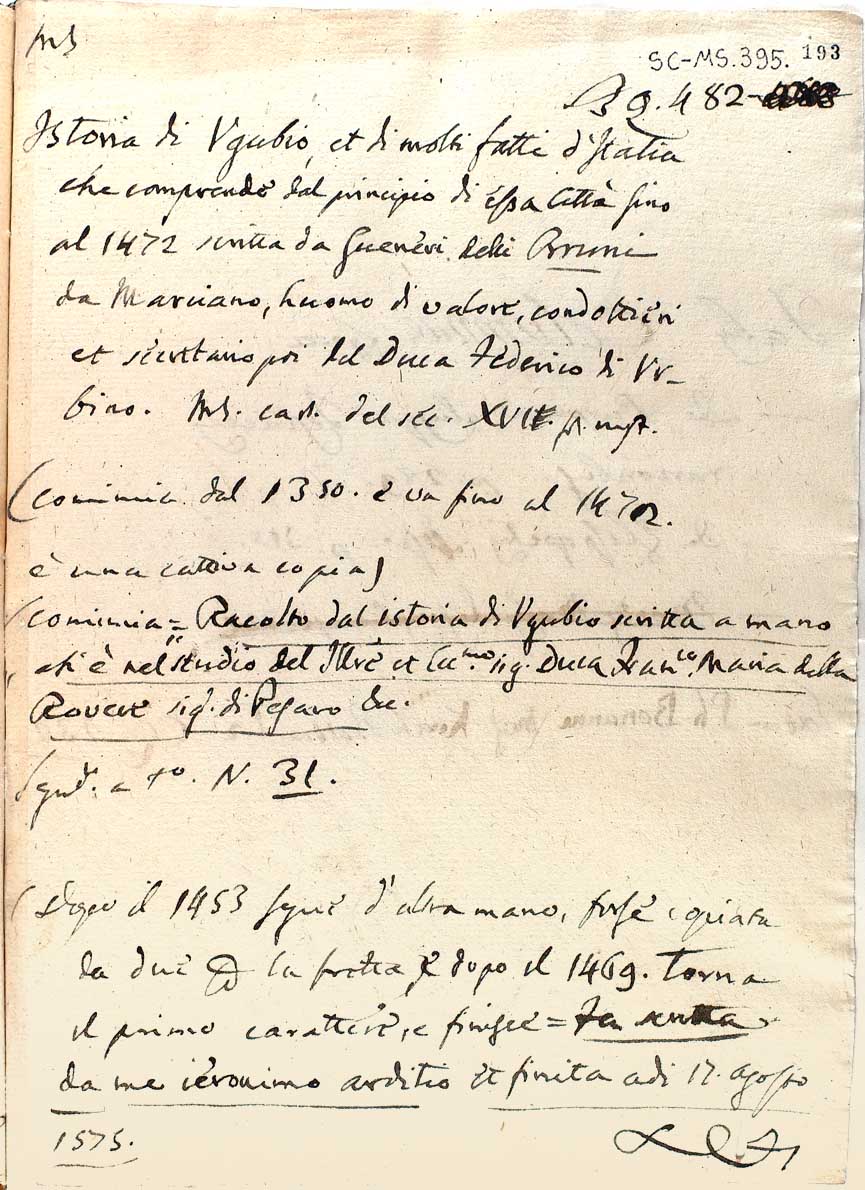 Ms
SC-MS. 395. 193
482
Istoria di Vgubio, et di molti fatti d'Italia
che comprende dal principio di essa Città fino
al 1472 scritta da Guernieri delli Bruni
da Marciano, huomo di valore, condottieri
et secretario poi del Duca Federico di Vr-
bino. Ms. cart. del sec. XVI
(comincia dal 1350. e va fino al 1472.
è una cattiva copia)
(comincia = Racolto dal istoria di Vgubio scritta a mano
ch'è nel studio del Illre et Ecc.mo sig. Duca Fran.co Maria della
Rovere sig. di Pesaro &c.
N. 31.
(dopo il 1453 segue d'altra mano, forse copiata
da due la fretta e dopo il 1469. Torna
il primo carattere, e finisce = scritta
da me ieronimo arditio et finita adi 17. agosto
1575.